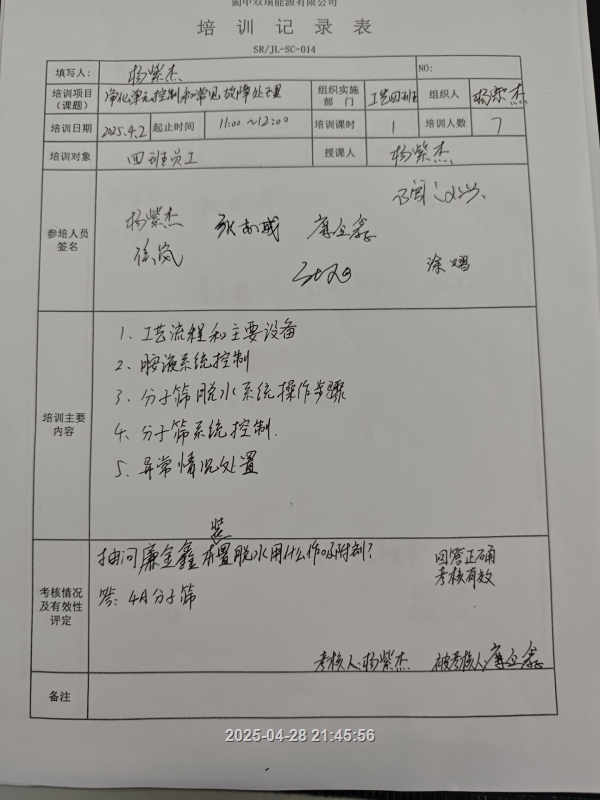 阆中双瑞能源有限公司
培训记录表
SR/JL-SC-014
填写人： 杨紫杰 NO:
培训项目（课题） 净化单元控制和常见故障处置 组织实施部门 工艺四班 组织人 杨紫杰
培训日期 2025.4.2 起止时间 11:00～12:00 培训课时 1 培训人数 7
培训对象 四班员工 授课人 杨紫杰
参培人员签名
杨紫杰 廉金鑫
徐岚
培训主要内容
1、工艺流程和主要设备
2、胺液系统控制
3、分子筛脱水系统操作步骤
4、分子筛系统控制.
5、异常情况处置
考核情况及有效性评定
抽问廉金鑫 装置脱水用什么作吸附剂？
答：4A分子筛
回答正确
考核有效
考核人：杨紫杰 被考核人：廉金鑫
备注
2025-04-28 21:45:56